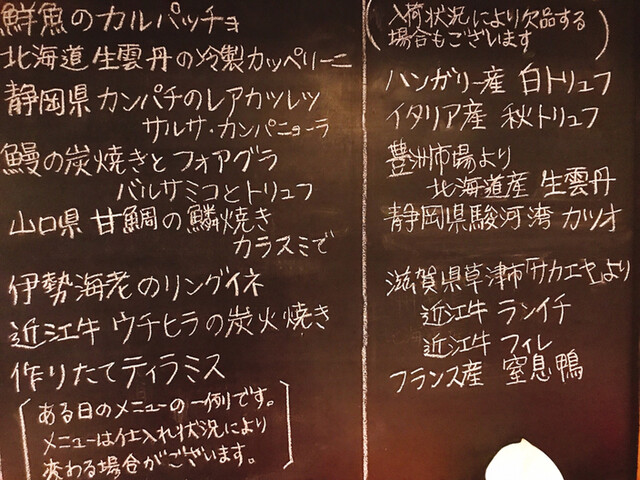 鮮魚のカルパッチョ
北海道 生雲丹の冷製カッペリーニ
静岡県 カンパチのレアカツレツ
サルサ・カンパニョーラ
鰻の炭焼きとフォアグラ
バルサミコとトリュフ
山口県 甘鯛の鱗焼き
カラスミで
伊勢海老のリングイネ
近江牛 ウチヒラの炭火焼き
作りたてティラミス
ある日のメニューの一例です。
メニューは仕入れ状況により
変わる場合がございます。
(入荷状況により欠品する
場合もございます)
ハンガリー産 白トリュフ
イタリア産 秋トリュフ
豊洲市場より
北海道産 生雲丹
静岡県駿河湾 カツオ
滋賀県草津市「サカエヤ」より
近江牛 ランイチ
近江牛 フィレ
フランス産 窒息鴨